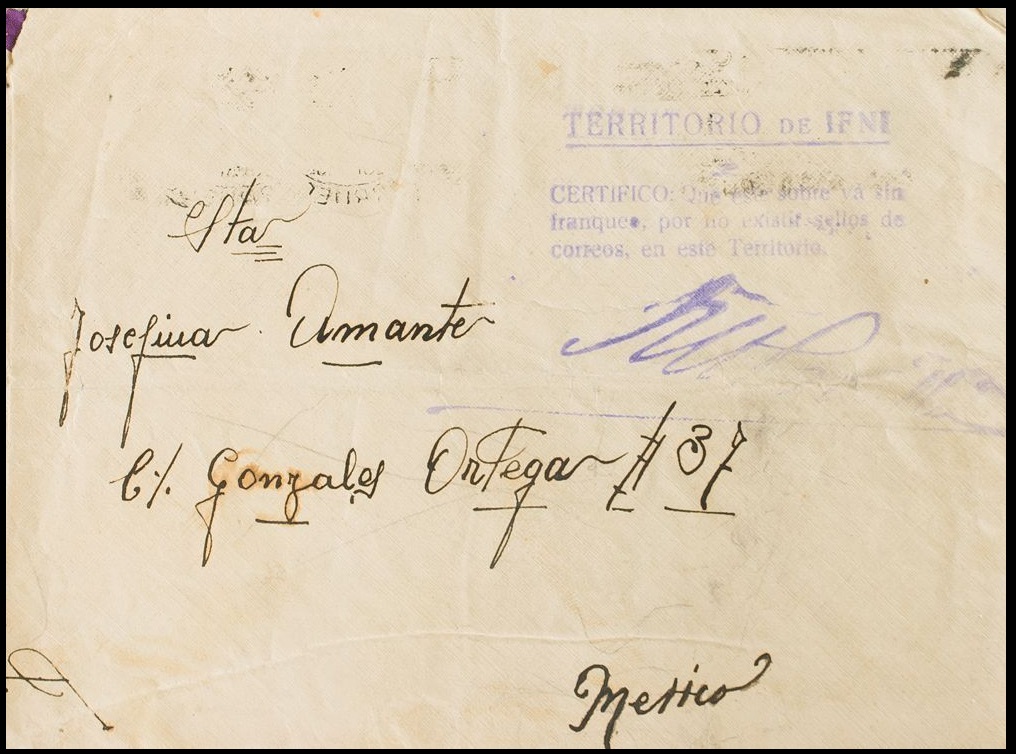 TERRITORIO DE IFNI
CERTIFICO: Que este sobre vá sin
franqueo, por no existir sellos de
correos, en este Territorio.
Sta
Josefina Amante
C/. Gonzales Ortega # 37
Messico